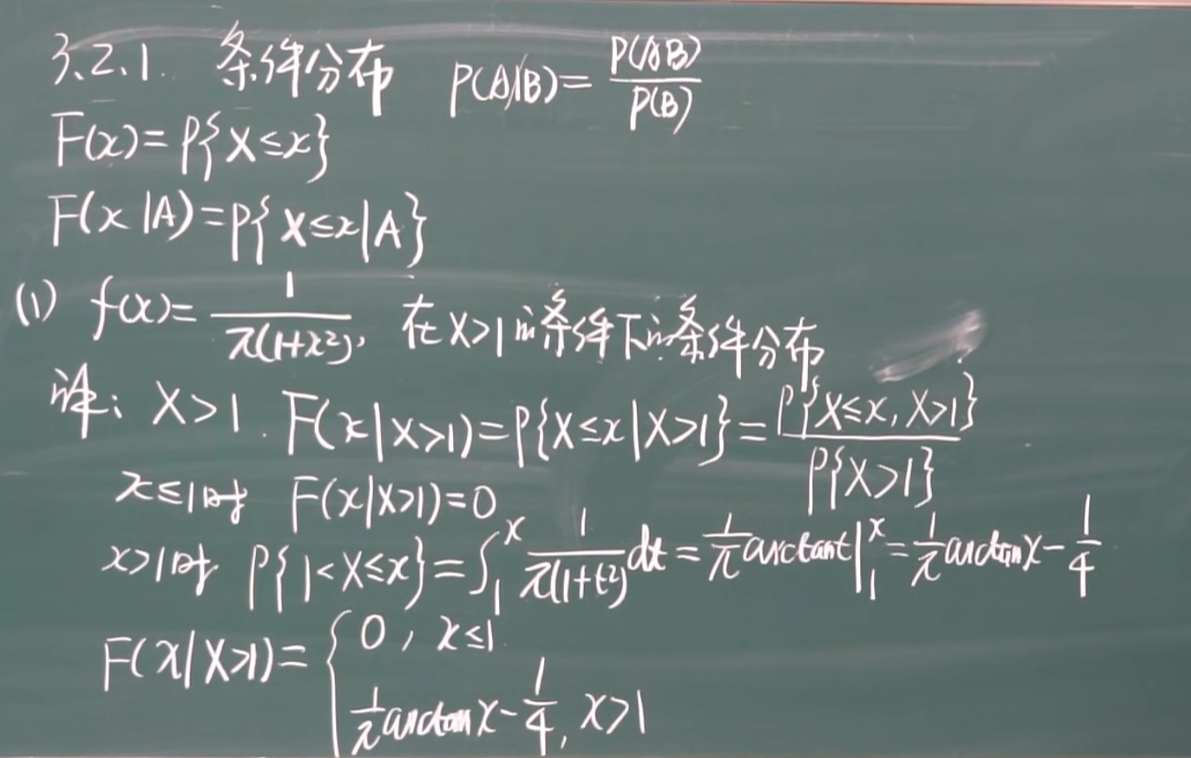 3.2.1. 条件分布 P(A|B)=P(AB)/P(B)
F(x)=P{X≤x}
F(x|A)=P{X≤x|A}
(1) f(x)=1/π(1+x²), 在X>1的条件下的条件分布
解: X>1. F(x|X>1)=P{X≤x|X>1}=P{X≤x,X>1}/P{X>1}
x≤1时 F(x|X>1)=0
x>1时, P{1<X≤x}=∫₁ˣ 1/π(1+t²) dt=1/π arctant|₁ˣ=1/π arctanx-1/4
F(x|X>1)={0, x≤1
1/π arctanx-1/4, x>1